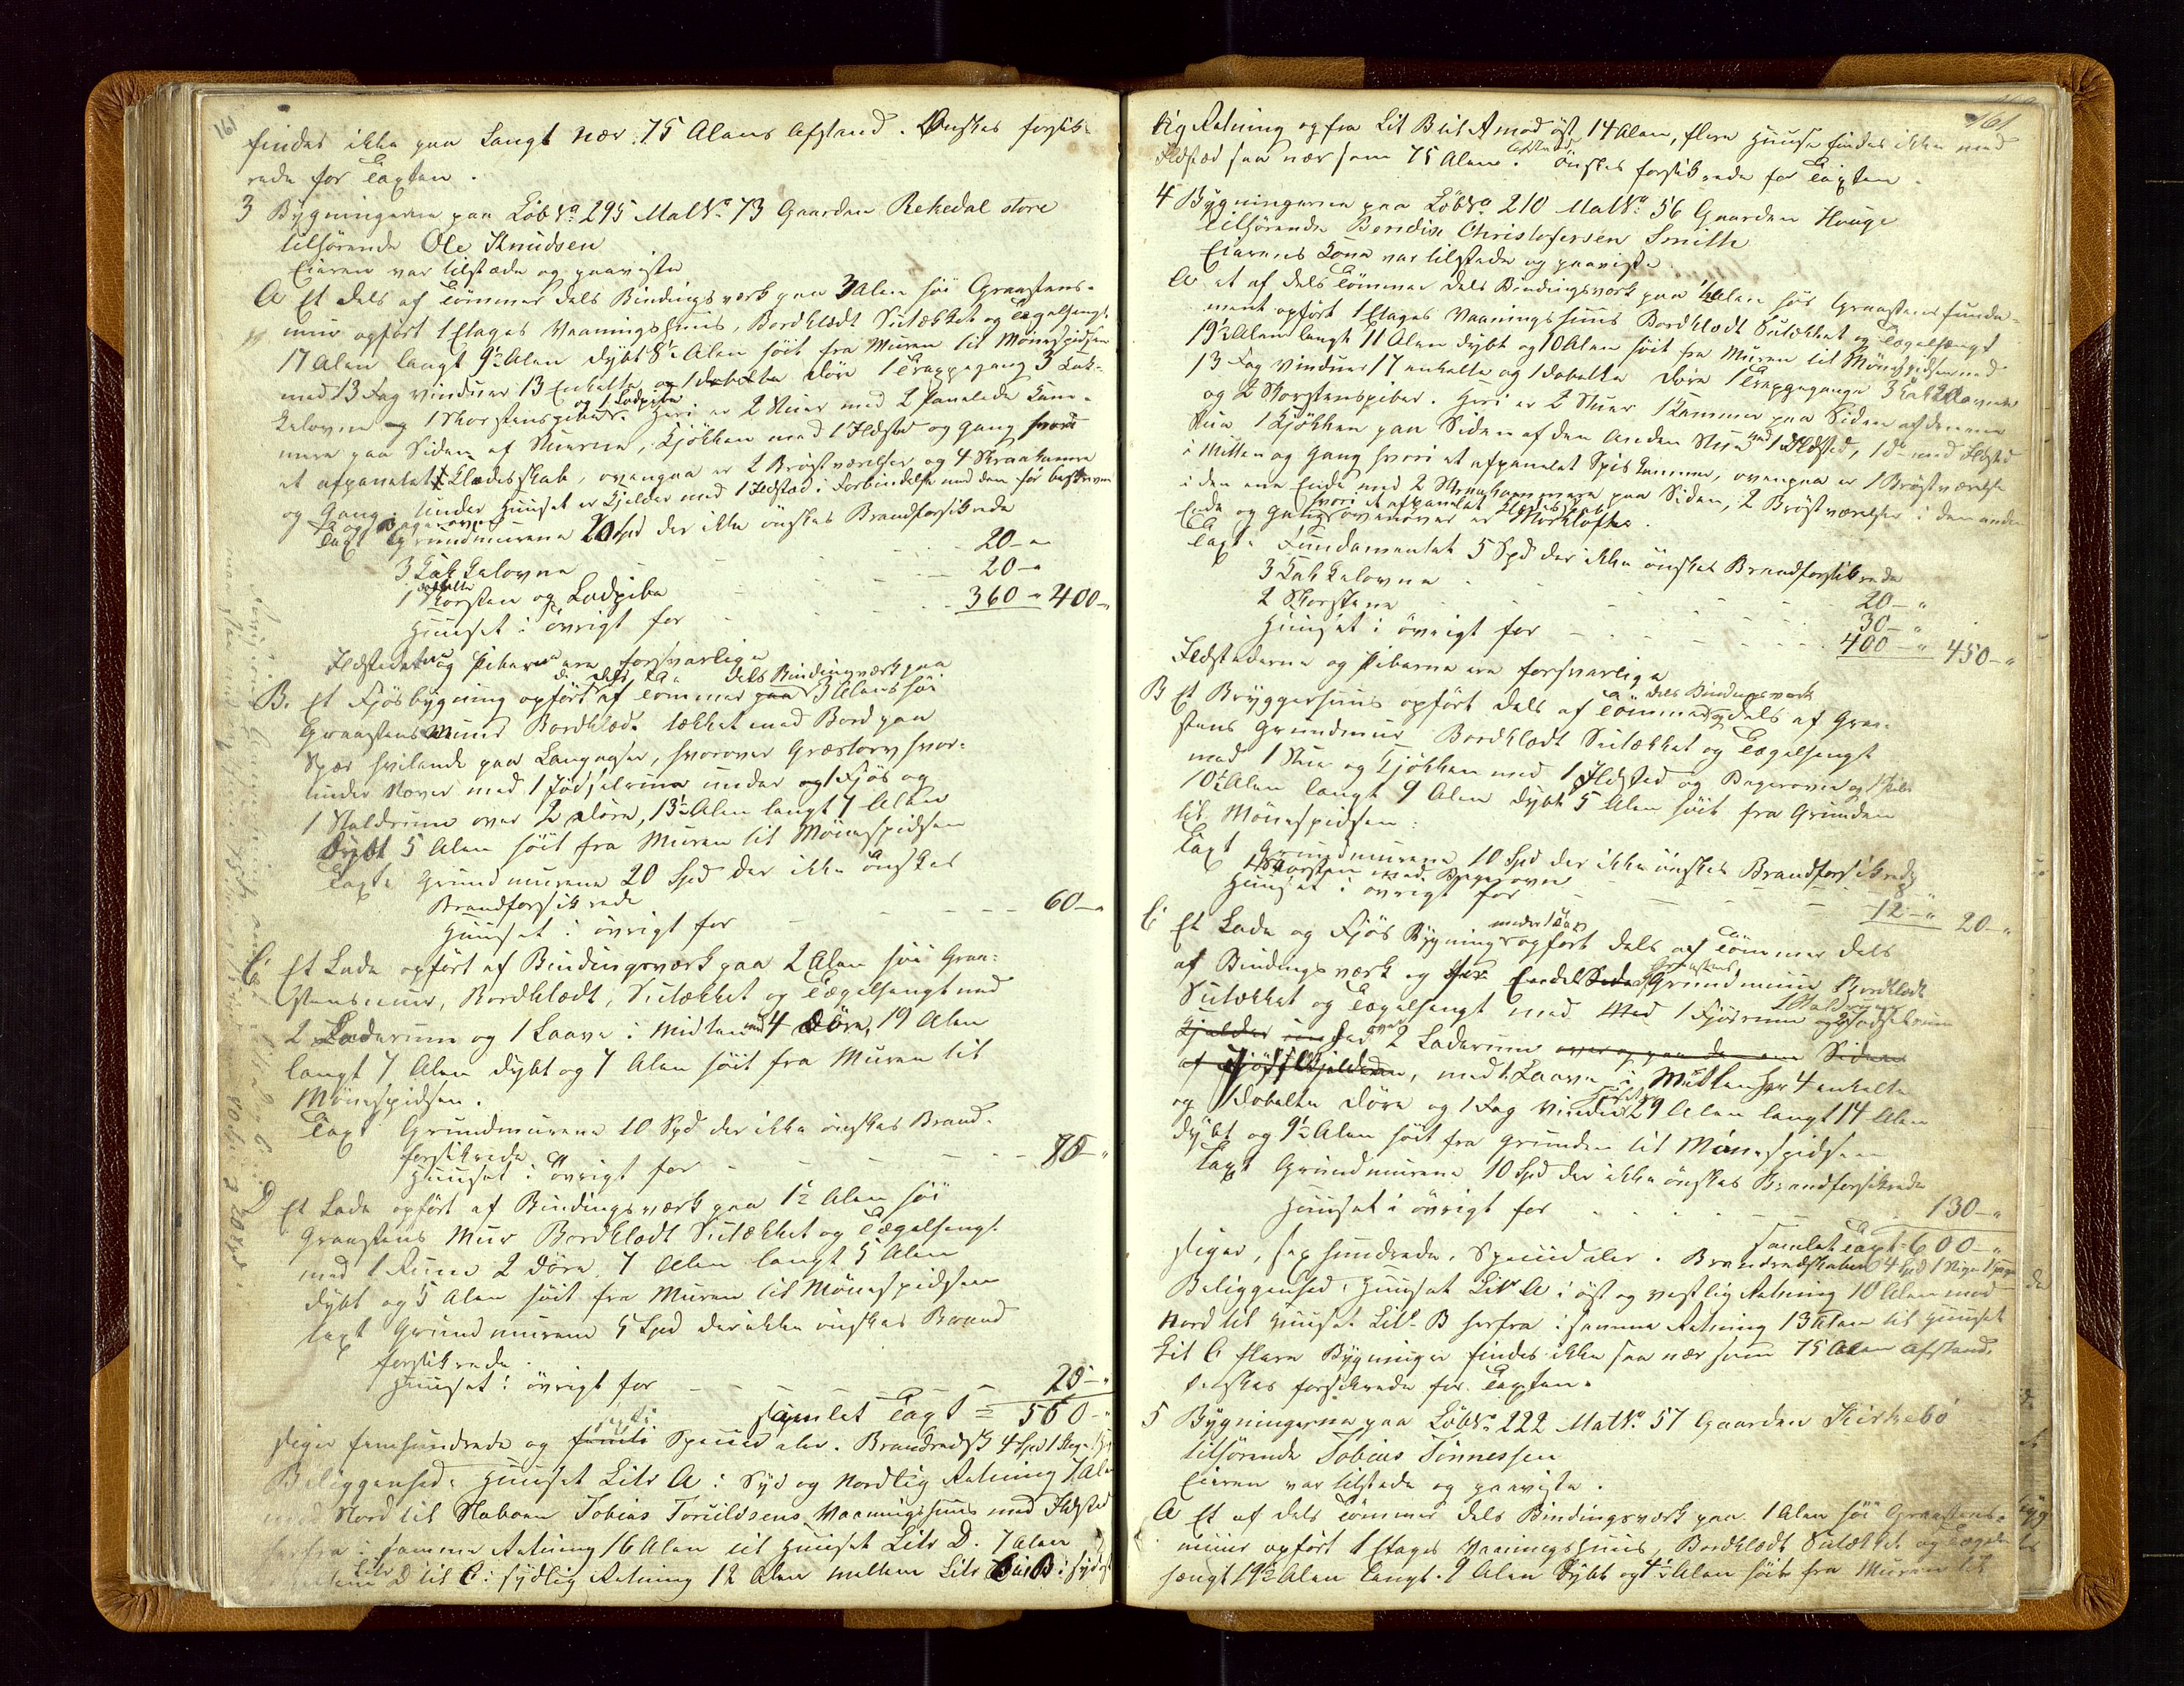 161
findes ikke paa Langt nær 75 Alens Afstand. Ønskes forsik-
rede for Taxten.
3 Bygningerne paa Löb No 295 Mat No 73 Gaarden Rekedal store
tilhörende Ole Knudsen
Eieren var tilstæde og paaviste
A Et dels af Tömmer dels Bindingsværk paa 3 Alen höi Graastens-
muur opfört 1 Etages Vaaningshuus, Bordklædt Sutækket og Tægelhængt
17 Alen langt 9½ Alen dybt 8½ Alen höit fra Muren til Mönespidsen
med 13 Fag vinduer 13 Enkelte og 1 dobelte Döre 1 Trappegang 3 Kak-
kelovne og 1 Skorstenspibe og 1 Ludpibe. Heri er 2 Stuer med 2 panelede Kam-
mere paa Siden af Stuerne, Kjökken med 1 Ildsted og Gang hvori
et afpanelet Klædeskab, ovenpaa er 2 Bröstværelser og 4 Skraakamre
og Gang. Under Huuset er Kjelder med 1 Ildsted i Forbindelse med den för beskrevne
og Bagerovn
Taxt Grundmurene 20 Spd der ikke önskes Brandforsikrede
3 Kakkelovne 20-"
1 dobbelte Skorsten og Ludpibe 20-"
Huuset i övrigt for 360-" 400-"
Ildstederne og Piberne ere forsvarlige
B. Et Fjösbygning opfört dels af Tömmer dels Bindingsværk paa 3 Alens höi
Graastensmuur Bordklædt tækket med Bord paa
Spær hvilende paa Langaaser, hvorover Græstorv hvor-
under Næver med 1 Jödselrum under og 1 Fjös og
1 Staldrum over 2 Döre, 13½ Alen langt 7 Alen
Dybt 5 Alen höit fra Muren til Mönespidsen
Taxt Grundmurene 20 Spd der ikke önskes
Brandforsikrede
Huuset i övrigt for 60-"
C. Et Lade opfört af Bindingsværk paa 2 Alen höi Graa-
stensmuur, Bordklædt, Sutækket og Tægelhængt med
2 Laderum og 1 Laave i Midten med 4 Döre, 19 Alen
langt 7 Alen dybt og 7 Alen höit fra Muren til
Mönespidsen.
Taxt Grundmurene 10 Spd der ikke önskes Brand-
forsikrede
Huuset i övrigt for 80-"
D Et Lade opfört af Bindingsværk paa 1½ Alen höi
Graastens Muur Bordklædt Sutækket og Tægelhængt
med 1 Rum 2 Döre. 7 Alen langt 5 Alen
dybt og 5 Alen höit fra Muren til Mönespidsen
Taxt Grundmurene 5 Spd der ikke önskes Brand
forsikrede.
Huuset i övrigt for 20-"
samlet Taxt = 560-"
siger femhundrede og Speciedaler. Brandredsk 4 Spd 1 Stige
Beliggenhed. Huuset Litr A i Syd og Nordlig Retning 7 Alen
mod Nord til Naboen Tobias Torrildsens Vaaningshuus med Ildsted
herfra i samme Retning 16 Alen til Huuset Litr D. 7 Alen
Litr D til C i sydlig Retning 12 Alen mellem Litr C til B i Sydost
161
lig Retning og fra Lit B til A mod öst 14 Alen, flere Huuse findes ikke med
Ildsted saa nær som 75 Alen Afstand. önskes forsikrede for Taxten.
4 Bygningerne paa Löb No 210 Mat No 56 Gaarden Hauge
tilhörende Bendix Christofersen Smith
Eierens Kone var tilstede og paaviste
A et af dels Tömmer dels Bindingsværk paa ½ Alen höi Graastensfunda-
ment opfört 1 Etages Vaaningshuus Bordklædt Sutækket og Tægelhængt
19½ Alen langt 11 Alen dybt og 10 Alen höit fra Muren til Mönespidsen med
13 Fag Vinduer 17 enkelte og 1 dobelte Döre 1 Trappegange 3 Kakkelovne
og 2 Skorstenspiber. Heri er 2 Stuer 1 Kammer paa Siden af den ene
Stue 1 Kjökken paa Siden af den Anden Stue med 1 Ildsted, 1 do med Ildsted
i Mitten og Gang hvori et afpanelet Spiskammer, ovenpaa er 1 Bröstværelse
i den ene Ende med 2 Skraakammere paa Siden, 2 Bröstværelser i den anden
Ende og Gang hvori et afpanelet Klædeskab ovenover er Mörkloft.
Taxt. Fundamentet 5 Spd der ikke önskes Brandforsikrede
3 Kakkelovne 20-"
2 Skorstene 30-"
Huuset i övrigt for 400-" 450-"
Ildstederne og Piberne ere forsvarlige
B Et Bryggerhuus opfört dels af Tömmer dels Bindingsværk og dels af Graa-
stens Grundmuur Bordklædt Sutækket og Tægelhængt
med 1 Stue og Kjökken med 1 Ildsted og Bagerovn og 1 Pibe
10½ Alen langt 9 Alen dybt 5 Alen höit fra Grunden
til Mönespidsen:
Taxt Grundmurene 10 Spd der ikke önskes Brandforsikrede
Skorsten med Bagerovn 8-"
Huuset i övrigt for 12-" 20-"
C Et Lade og Fjös Bygning under 1 Tag opfört dels af Tömmer dels
af Bindingsværk og Graastens Grundmuur Bordklædt
Sutækket og Tægelhængt med 1 Fjösrum 1 Staldrum og Jödselrum
Kjelder over 2 Laderum Siden
af Jödselkjelderen, med 1 Laave i Mitten har 4 enkelte
og 1 dobelte Döre og 1 Fag Vinduer 29 Alen langt 14 Alen
dybt og 9½ Alen höit fra Grunden til Mönespidsen
Taxt Grundmurene 10 Spd der ikke önskes Brandforsikrede
Huuset i övrigt for 130-"
samlet Taxt = 600-"
siger, sex hundrede, Speciedaler. Brandredskaber 4 Spd 1 Stige
Beliggenhed: Huuset Litr A i öst og vestlig Retning 10 Alen mod
Nord til Huuset Litr B herfra i samme Retning 13 Alen til Huuset
Lit C flere Bygninger findes ikke saa nær som 75 Alen Afstand.
Önskes forsikrede for Taxten.
5 Bygningerne paa Löb No 222 Mat No 57 Gaarden Kirkebö
tilhörende Tobias Tönnessen
Eieren var tilstede og paaviste.
A Et af dels Tömmer dels Bindingsværk paa 1 Alen höi Graastens-
muur opfört 1 Etages Vaaningshuus, Bordklædt Sutækket og Tægel-
hængt 19½ Alen langt. 9 Alen dybt og 7½ Alen höit fra Muren til